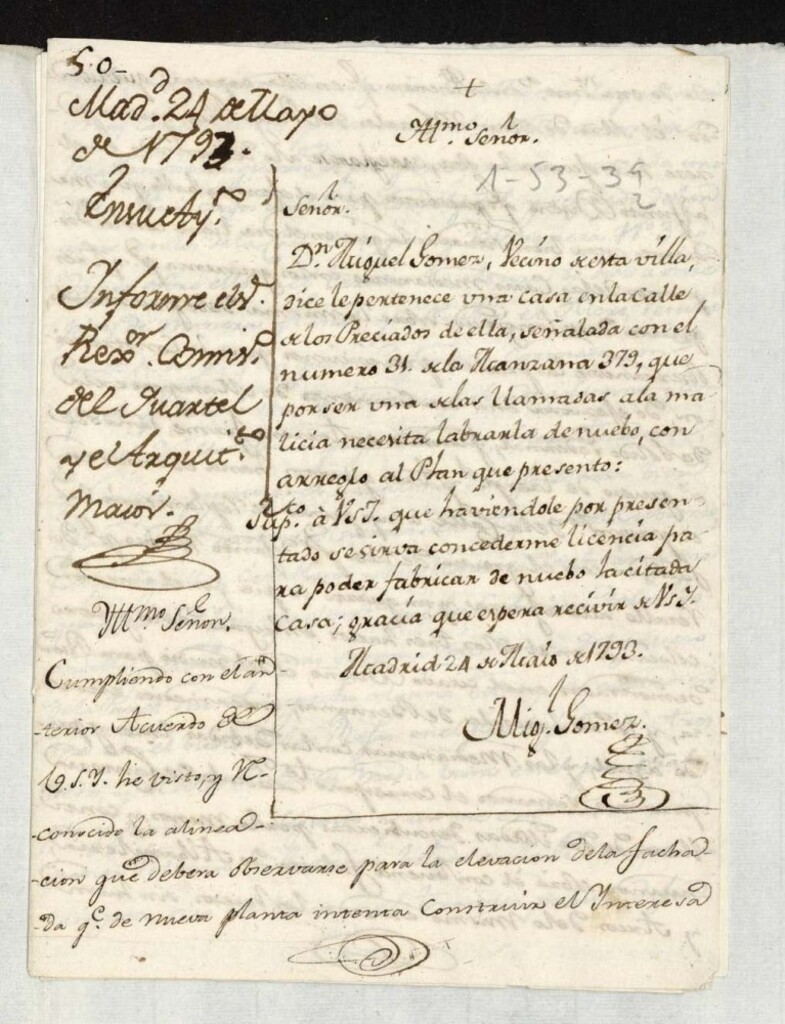 50-
Mad.d 24 de Mayo
de 1793.
En su Ay.to
Informe el S.r
Rex.or Comis.o
del Quartel
y el Arquit.to
maior.
+
Yll.mo Señor.
1-53-39
2
Señor.
D.n Miguel Gomez, Vecino de esta villa,
dice le pertenece una casa en la Calle
de los Preciados de ella, señalada con el
numero 31. de la Manzana 379, que
por ser una de las llamadas a la ma
licia necesita labrarla de nuebo, con
arreglo al Plan que presento:
Sup.co à VSY. que haviendole por presen-
tado se sirva concederme licencia pa-
ra poder fabricar de nuebo la citada
Casa; gracia que espera recivir de VSY.
Madrid 24 de Maio de 1793.
Mig.l Gomez.
Yll.mo Señor.
Cumpliendo con el an-
-terior Acuerdo de
V.S.Y. he visto, y Re-
-conocido la alinea-
-cion que debera observarse para la elevacion de la facha-
-da q.e de nueva planta intenta Construir el Ynteresad.o